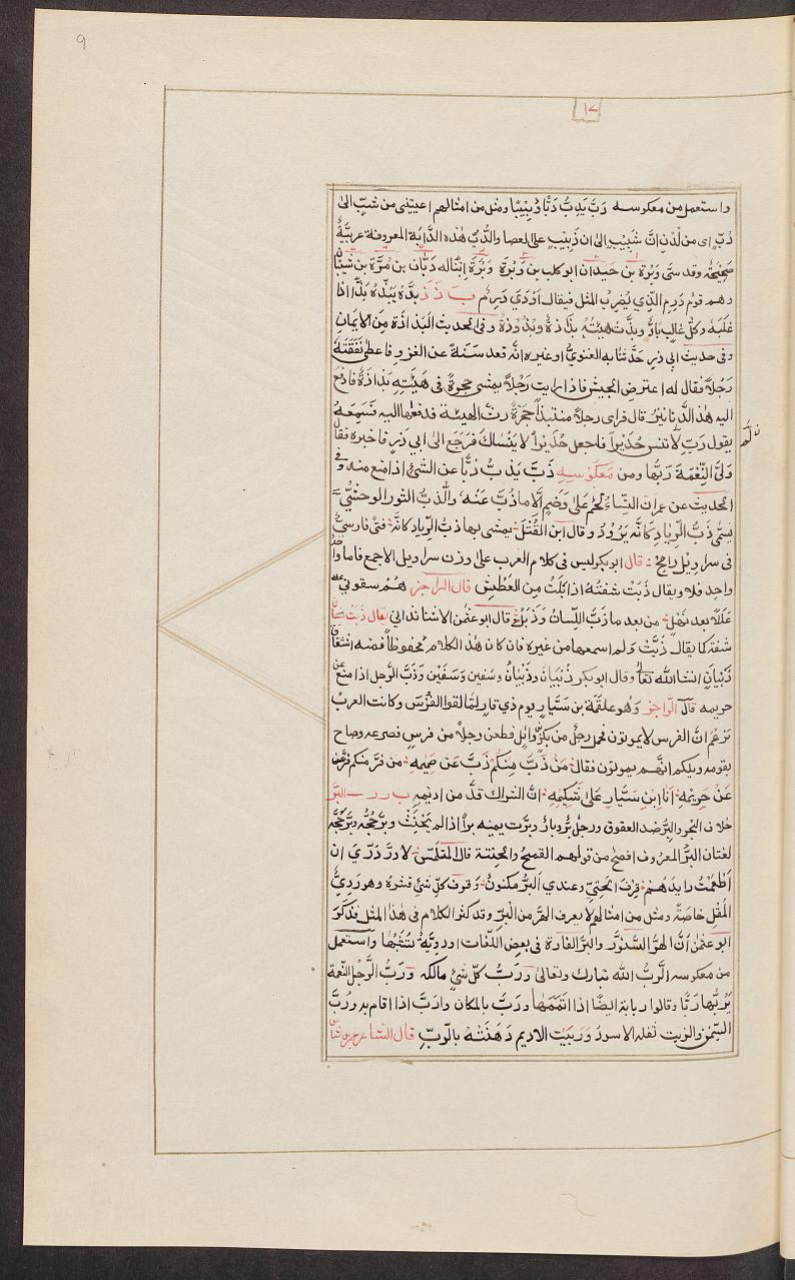 9
١٢
واستعمل من معكوسه دَبَّ يَدِبُّ دَبًّا وَدَبِيبًا ومثل من امثالهم اعييتنى من شبّ الى
دُبّ اى من لَدُن انَّ شَبِيْبٍ الى ان دَبِيْبٍ على العصا والدُّبّ هذه الدَّابَة المعروفة عربيَّةٌ
صَحِيْحَةٌ وقد سمَّى وَبُرَة بن حَيْدان ابو كلب بن وَبُرَة ابْنًا له دَبًّا
وهم قوم دَرِم الّذي يُضرب المثل فيقال اَوْدَى دَرِمٌ ب ذ ذ بَذَّهُ يَبُذُّهُ بَذًّا اذا
غَلَبَه وكلّ غالبٍ باذٌّ وبذَّت هَيْئَتُه بَذَاذَةً وبُذُوذَةً وفى الحديث البَذَاذَة مِنَ الاِيْمَانِ
وفى حديث ابي ذر حَدَّثنا به الغنويُّ او غيره انّه قعد سَنَةً عن الغزو فاعطى نَفَقَتَهُ
رَجُلًا فقال له اعترض الجيش فاذا رايت رَجُلًا يمشى حجرةً فى هَيْئَتِهِ بَذاذَةٌ فادفع
اليه هٰذه الدَّنانيْرَ قال فراى رجلًا منتبذًا حَجْرَةً رثّ الهيئة فدفعها اليه فسَمِعَهُ
يقول رَبِّ لَا تنس حُدَيْراً فاجعل حُدَيْراً لا يَنْسَاكَ فَرَجَع الى ابي ذرٍ فاخبره فقال
وَلىَّ النِّعْمَةَ رَبَّها ومن مَعكوسِهِ ذَبَّ يَذُبُّ ذَبًّا عن الشئ اذا منع منه وفى
الحديث عن عمران النِّساء لحمٌ على وَضَمٍ اِلَّا ما ذُبَّ عَنْهُ والذَّبّ الثور الوحشىّ
يسمّى ذَبَّ الرِّيادِ كانَّه يَرُوْدُ وقال ابن مُقْبِل يمشى بها ذبُّ الرِّياد كانَّهٗ فتًى فارسىٌّ
فى سراويل رامح قال ابوبكر ليس فى كلام العرب على وزن سراويل الا جمع فاما
واحد فلا ويقال ذَبَّت شفتُهُ اذا ذَبُلَتْ مِن العَطَشِ قال الراجز هُمْ سقونى
عَلَلاً بعد نَهَلٍ من بعد ما ذَبَّ اللِّسانُ وَذَبَل قال ابو عثمٰن الاشناندانى يقال ذَبَّتْ
شفته كما يقال ذَبَّتْ وَلم اسمعها من غيره فان كان هٰذا الكلام محفوظاً فمنه اشتقاق
ذُبْيَانَ انشاالله تعالى وقال ابوبكر ذُبْيَان وذِبْيَانٌ وسُفين وَسَفْيَن وَذَبَّ الرَّجل اذا منع عن
حريمه قال الرّاجز وَهُو علقمة بن سَيَّار يوم ذي قار لمّا لقوا الفُرْسَ وكانت العرب
تزعم انَّ الفرس لا يموتون فحمل رجلٌ من بكرِ وائِل فطعن رجلاً من فرسٍ فصرعه وصاح
بقومه ويلكم انَّهم يموتون فقال مَنْ ذَبَّ مِنكُمْ ذَبَّ عَن حَمِيمِهِ من فرَّ منكم فرّ
عَنْ حَرِيْمِه اَنَا ابن سَيَّارٍ عَلىٰ شَكِيْمِهِ انَّ الشراك قُدَّ من اديمه ب ر ر البرّ
خلاف البحر والبِرّ ضد العقوق ورجلٌ بَرٌّ وبارٌّ وبرَّت يمينه برًّا اذا لم يَحْنَثْ وبرّ حَجُّهٗ وبُرَّ حَجُّهٗ
لغتان البُرّ المعروف افصح من قولهم القمحُ والحِنْطة قال المتلمّس لا دَرَّ دَرِّيَ ان
اَطْعَمْتُ رايدهُمْ قِرْفَ الحَتِيِّ وعندي البُرُّ مكنوزُ وقرف كلّ شئٍ قشره وهو رَدِيُّ
المُقْلِ خاصّةً ومثل من امثالهم لا يعرف الهرّ من البرّ وقد كثر الكلام فى هٰذا المثل فذكَرَ
ابو عثمٰن اَنَّ الهِرّ السَّنَّوْر والبِرّ الفارة فى بعض اللّغات او دُوَيْبَّةٌ تُشْبِهُها واستعمل
من معكوسه الرَّبُّ الله تبارك وتعالىٰ ورَبُّ كلّ شئٍ مالكه ورَبَّ الرَّجلُ النّعمة
يَرُبُّها رَبًّا وقالوا رِبابة ايضًا اذا اتَمَّمَها ورَبَّ بالمكان واَرَبَّ اذا اقام به ورُبَّ
السَّمن والزيت ثفله الاسود وَرَبَيْت الاديم دَهَنْتُهٗ بالرّبّ قال الشاعر